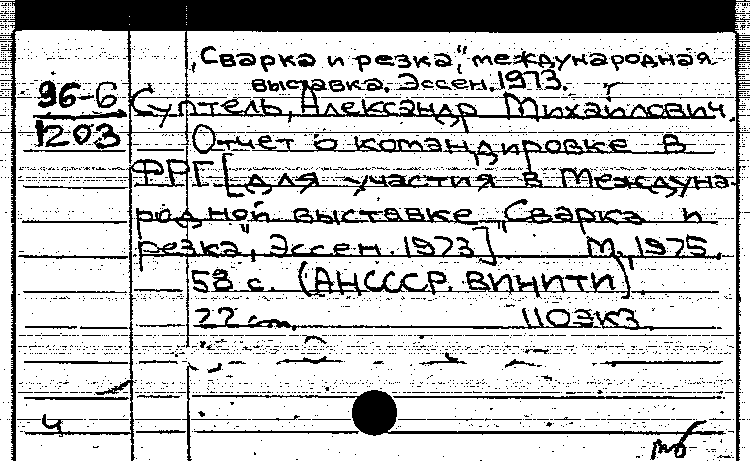 „Сварка и резка", международная
выставка. Эссен. 1973.
96-6
1203
Суптель, Александр Михайлович.
Отчет о командировке в
ФРГ [для участия в Междуна-
родной выставке „Сварка и
резка", Эссен. 1973]. М., 1975.
58 с. (АН СССР. ВИНИТИ).
22 см. 110 экз.
ч